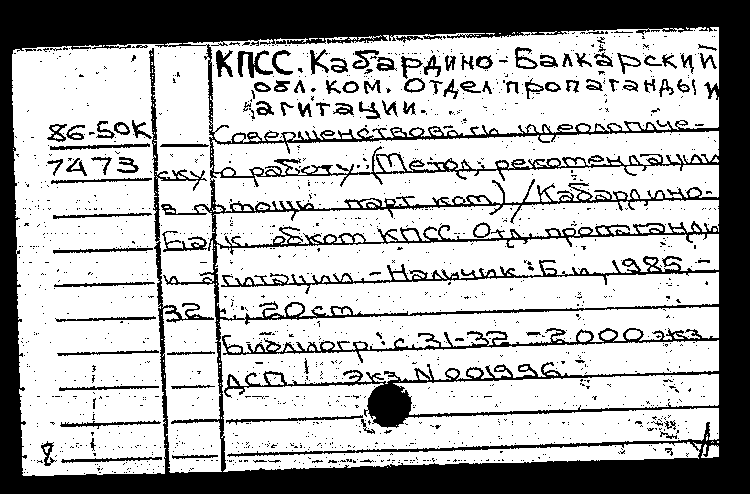 КПСС. Кабардино-Балкарский
обл. ком. Отдел пропаганды и
агитации.
86-50К Совершенствовать идеологиче-
7473 скую работу: (Метод. рекомендации
в помощь парт. ком.) / Кабардино-
Балк. обком КПСС. Отд. пропаганды
и агитации. - Нальчик: Б.и., 1985. -
32 с.; 20 см.
Библиогр.: с. 31-32. - 2.000 экз.
ДСП. Экз. N 001996.
8